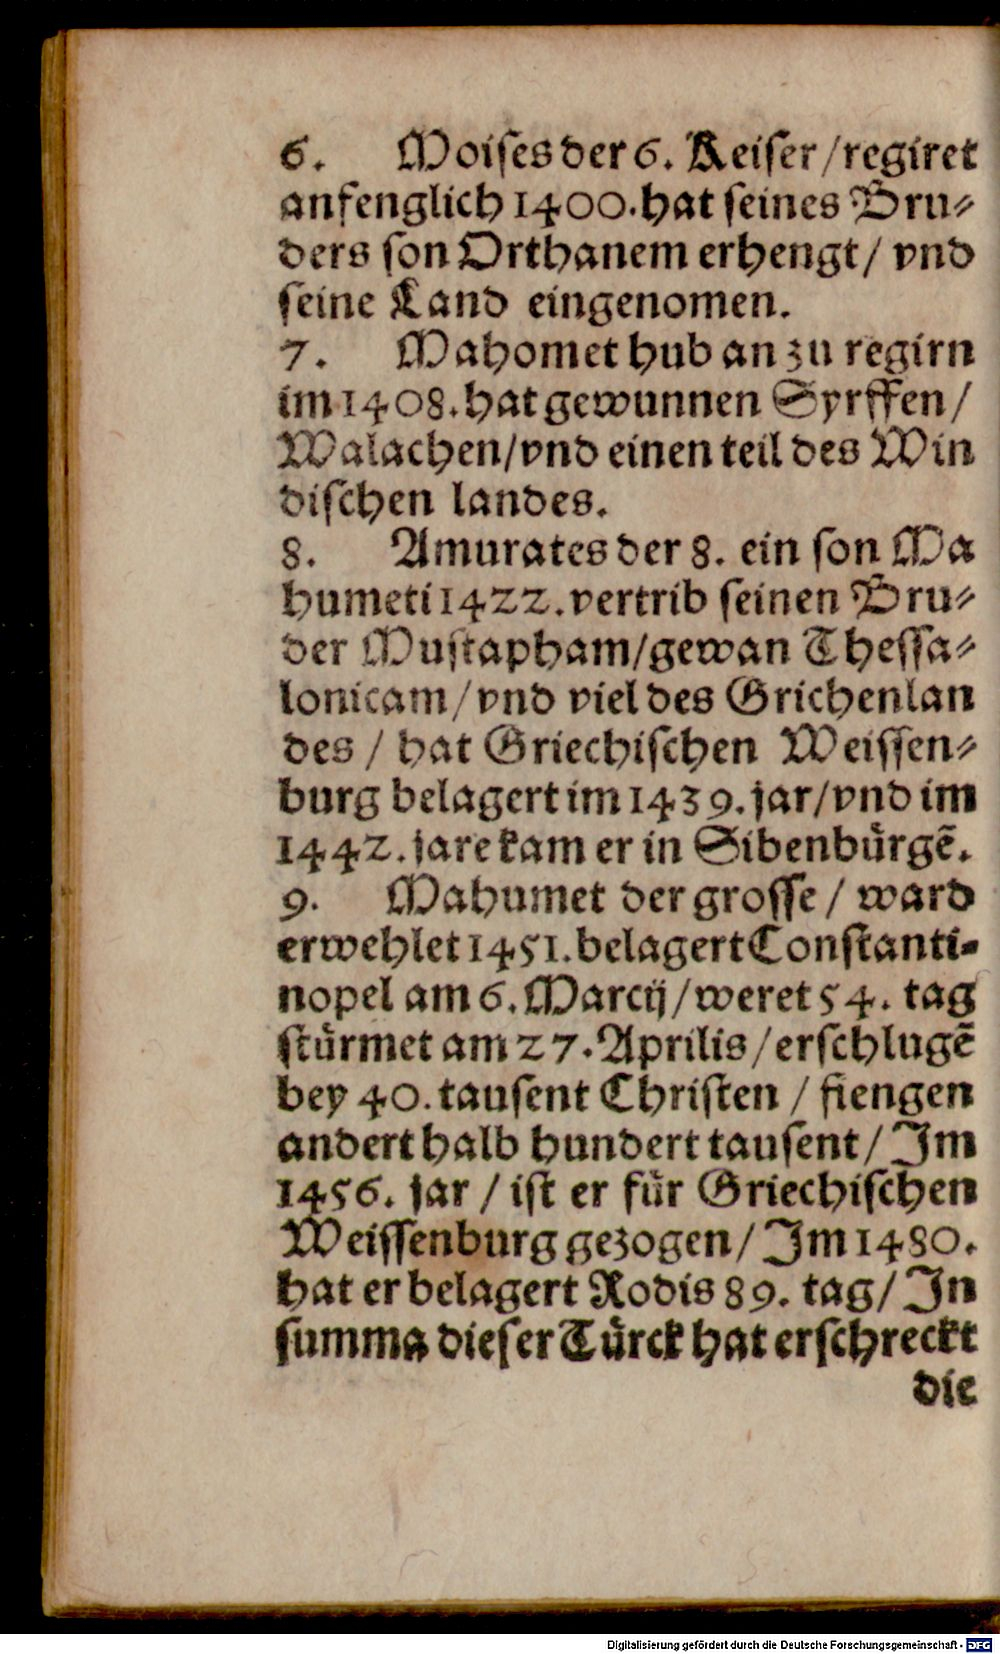 6. Moiſes der 6. Keiſer / regiret
anfenglich 1400. hat ſeines Bru⸗
ders ſon Orthanem erhengt / vnd
ſeine Land eingenomen.
7. Mahomet hub an zu regirn
im 1408. hat gewunnen Syrffen /
Walachen / vnd einen teil des Win
diſchen landes.
8. Amurates der 8. ein ſon Ma
humeti 1422. vertrib ſeinen Bru⸗
der Muſtapham / gewan Theſſa⸗
lonicam / vnd viel des Grichenlan
des / hat Griechiſchen Weiſſen⸗
burg belagert im 1439. jar / vnd im
1442. jare kam er in Sibenbuͤrgẽ.
9. Mahumet der groſſe / ward
erwehlet 1451. belagert Conſtanti⸗
nopel am 6. Marcij / weret 54. tag
ſtuͤrmet am 27. Aprilis / erſchlugẽ
bey 40. tauſent Chriſten / fiengen
andert halb hundert tauſent / Im
1456. jar / iſt er fuͤr Griechiſchen
Weiſſenburg gezogen / Im 1480.
hat er belagert Rodis 89. tag / In
ſumma dieſer Tuͤrck hat erſchreckt
die
Digitalisierung gefördert durch die Deutsche Forschungsgemeinschaft - DFG